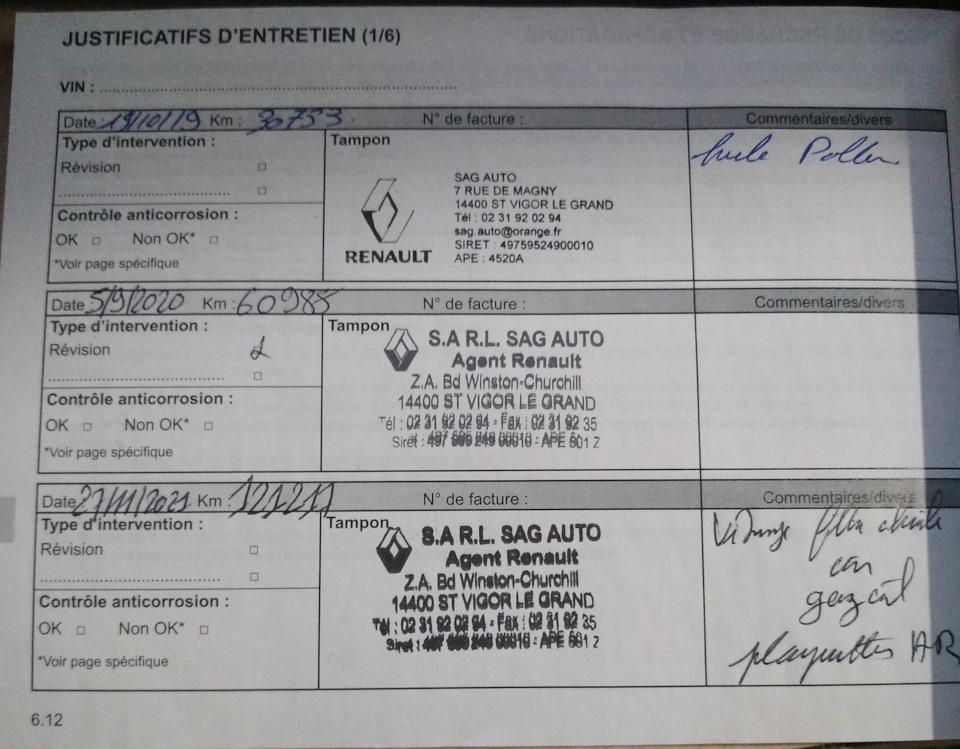 JUSTIFICATIFS D'ENTRETIEN (1/6)
VIN :
Date : 19/10/19 Km : 30733 N° de facture : Commentaires/divers
Type d'intervention :
Tampon
huile Pollen
Révision
Contrôle anticorrosion :
OK Non OK*
*Voir page spécifique
RENAULT
SAG AUTO
7 RUE DE MAGNY
14400 ST VIGOR LE GRAND
Tél : 02 31 92 02 94
sag.auto@orange.fr
SIRET : 49759524900010
APE : 4520A
Date 5/9/2020 Km : 60988 N° de facture : Commentaires/divers
Type d'intervention :
Tampon
Révision
Contrôle anticorrosion :
OK Non OK*
*Voir page spécifique
S.A R.L. SAG AUTO
Agent Renault
Z.A. Bd Winston-Churchill
14400 ST VIGOR LE GRAND
Tél : 02 31 92 02 94 - Fax : 02 31 92 35
Siret : APE
Date 27/11/2021 Km : 121217 N° de facture : Commentaires/divers
Type d'intervention :
Tampon
Révision
Contrôle anticorrosion :
OK Non OK*
*Voir page spécifique
S.A R.L. SAG AUTO
Agent Renault
Z.A. Bd Winston-Churchill
14400 ST VIGOR LE GRAND
Tél : 02 31 92 02 94 - Fax : 02 31 92 35
Siret : APE
huile
plaquettes AR
6.12